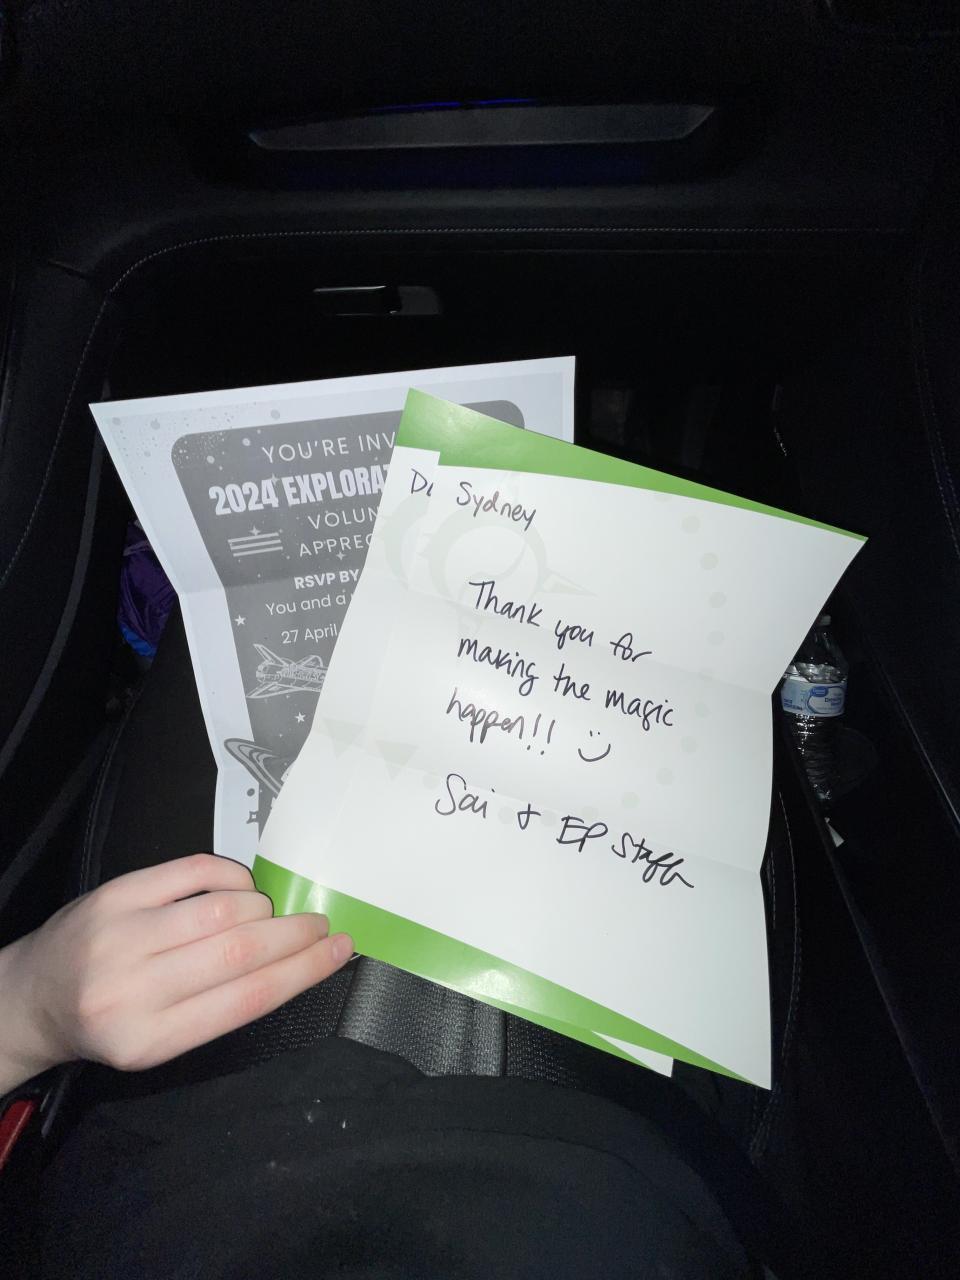 YOU'RE INV
2024 EXPLORA
VOLUN
APPREC
RSVP BY
You and a
27 April
Di Sydney
Thank you for
making the magic
happen!! :)
Sai + EP Staff